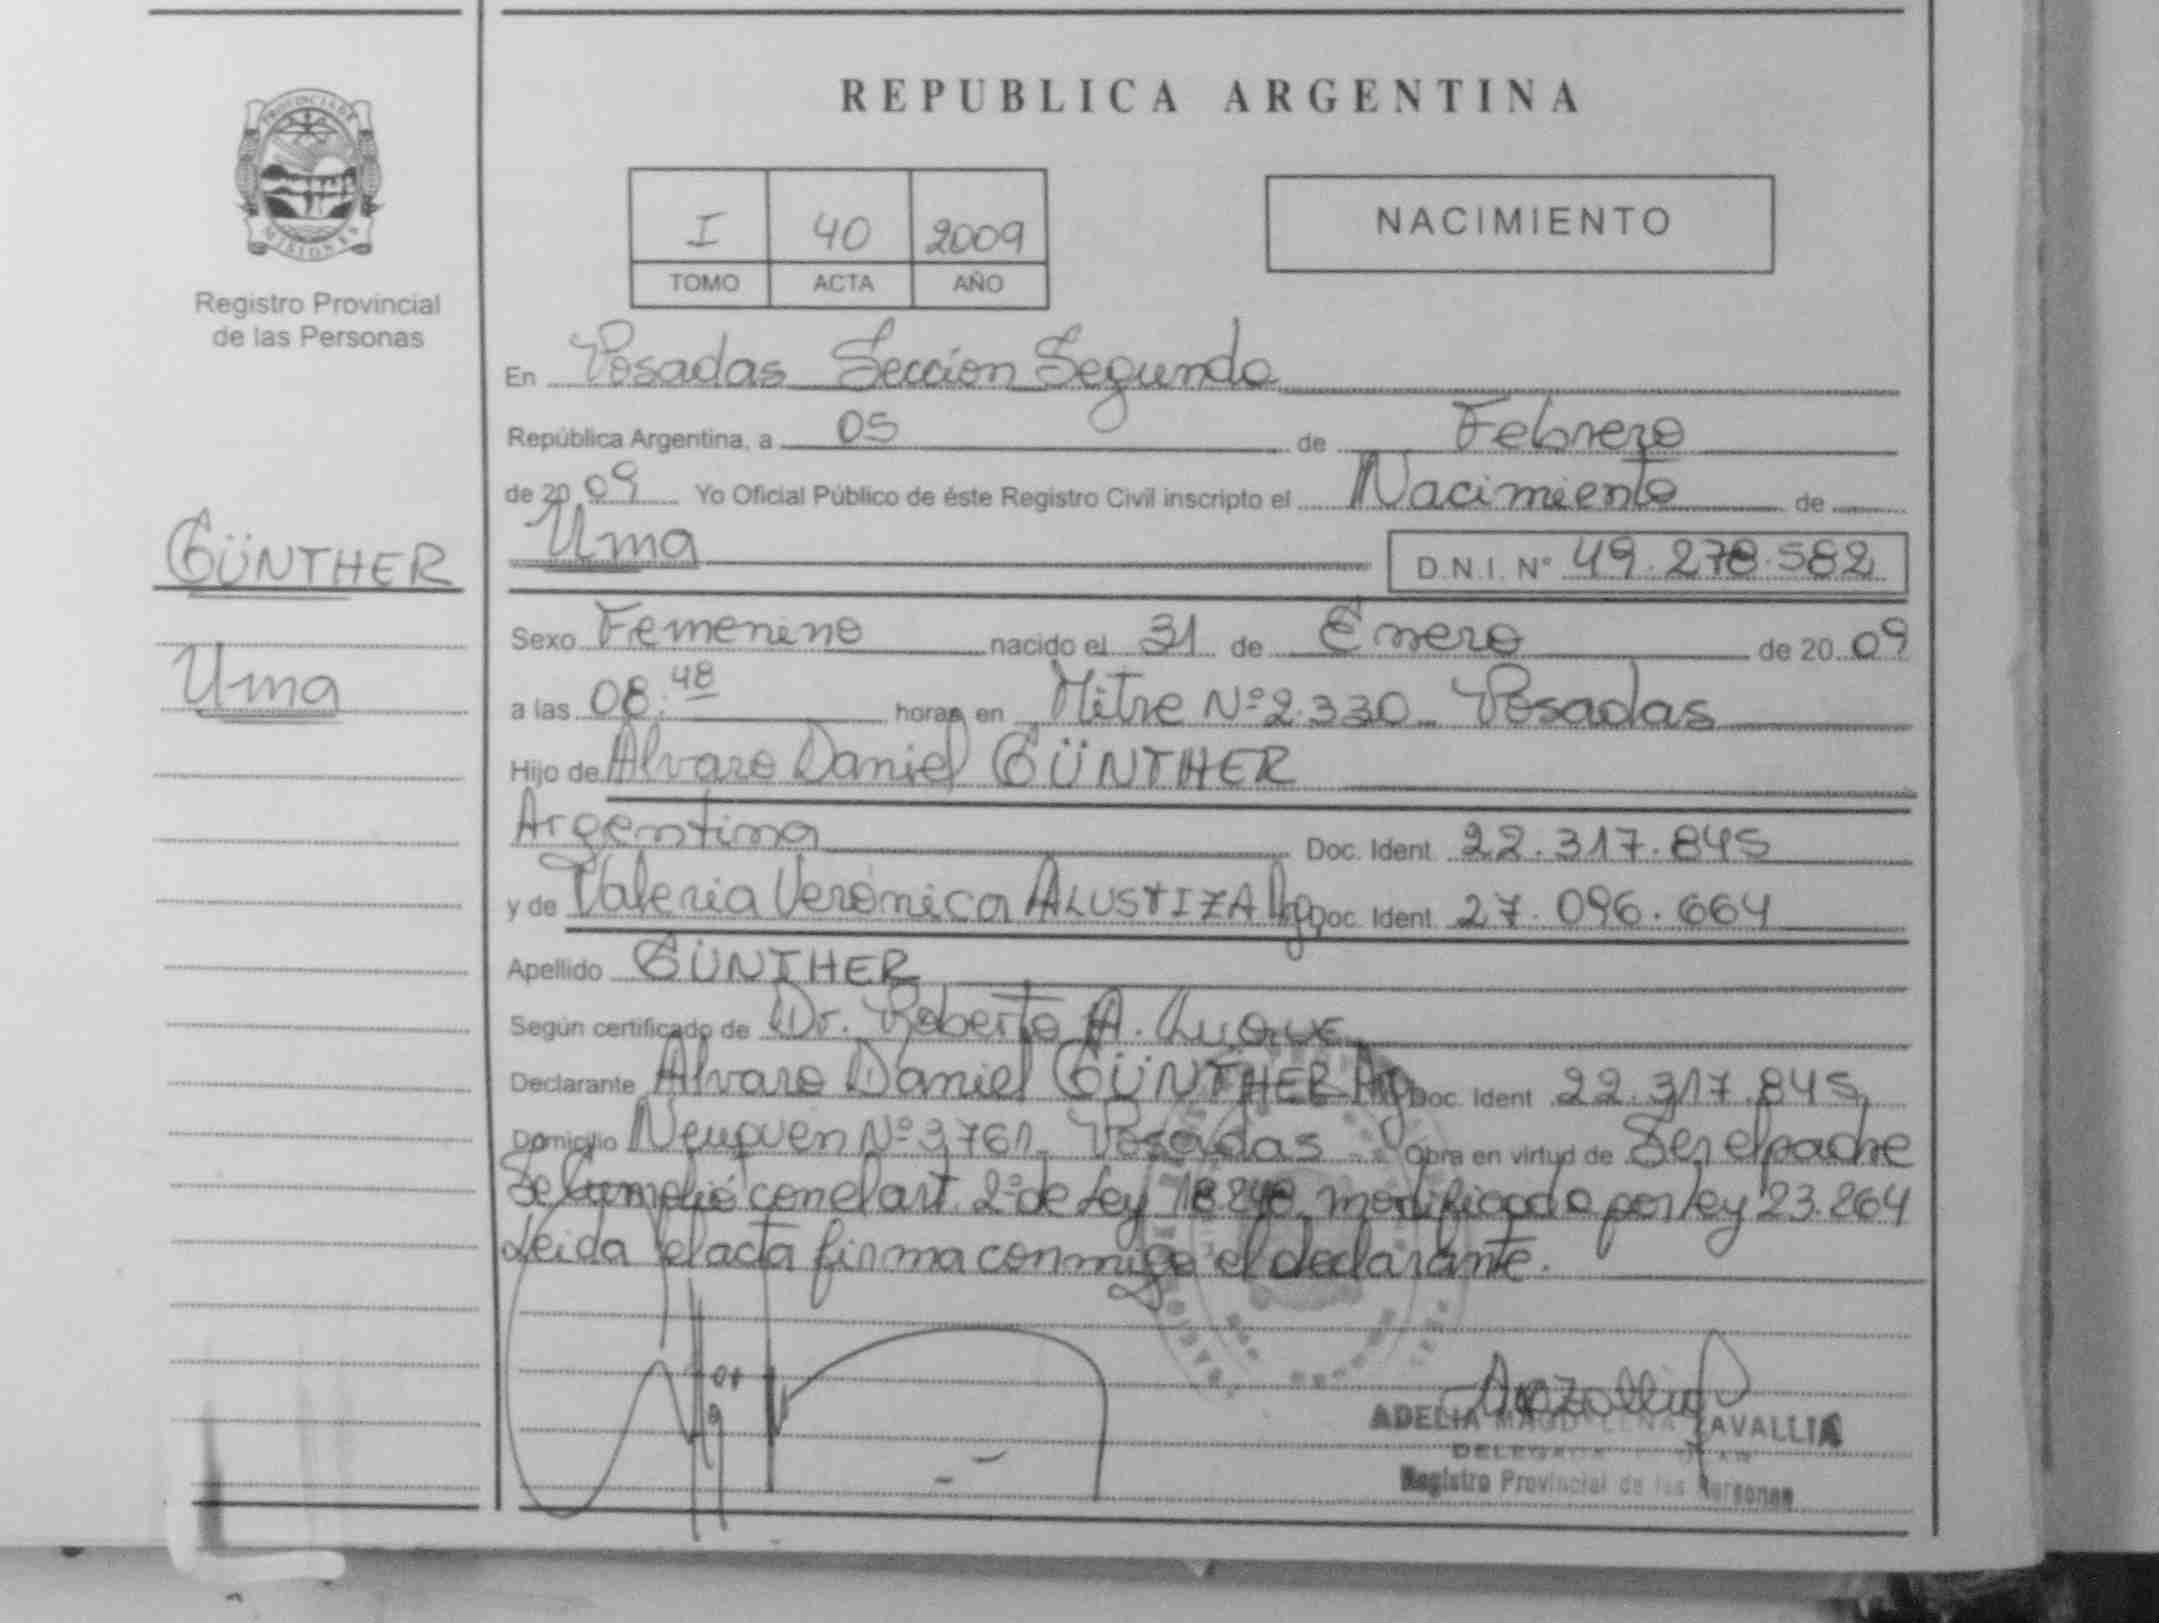 PROVINCIA DE
MISIONES
Registro Provincial
de las Personas
GÜNTHER
Uma
REPUBLICA ARGENTINA
I 40 2009
TOMO ACTA AÑO
NACIMIENTO
En Posadas Sección Segunda
República Argentina, a 05 de Febrero
de 20 09 Yo Oficial Público de éste Registro Civil inscripto el Nacimiento de
Uma D.N.I. Nº 49.278.582
Sexo Femenino nacido el 31 de Enero de 20 09
a las 08:48 horas en Mitre Nº 2.330 Posadas
Hijo de Alvaro Daniel GÜNTHER
Argentina Doc. Ident. 22.317.845
y de Valeria Verónica ALUSTIZA Arg. Doc. Ident. 27.096.664
Apellido GÜNTHER
Según certificado de Dr. Roberto A. Luque
Declarante Alvaro Daniel GÜNTHER Arg Doc. Ident 22.317.845
Domicilio Neuquén Nº 3761 Posadas Obra en virtud de Ser el padre
Se Cumplió con el art. 2º de Ley 18.248 modificado por ley 23.264
Leida el acta firma conmigo el declarante.
ADELIA MAGDALENA ZAVALLIA
Registro Provincial de las Personas